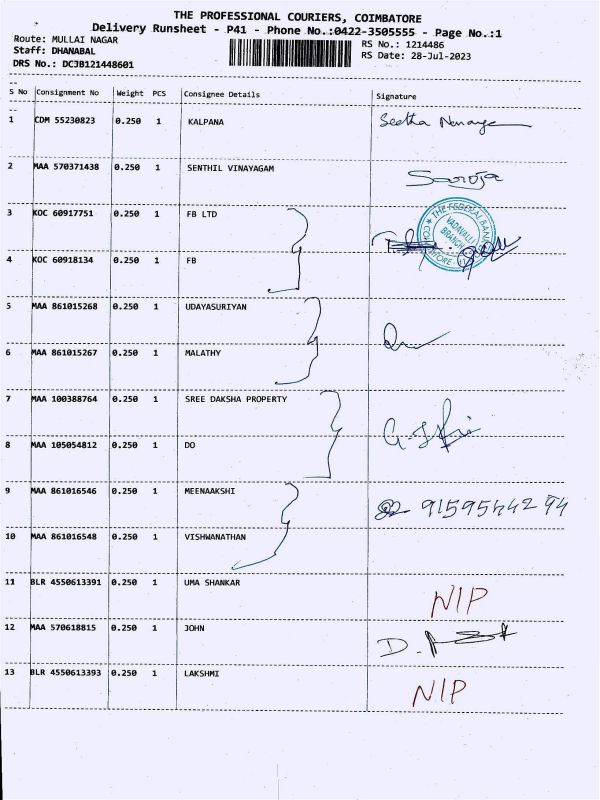 THE PROFESSIONAL COURIERS, COIMBATORE
Delivery Runsheet - P41 - Phone No.:0422-3505555 - Page No.:1
Route: MULLAI NAGAR
RS No.: 1214486
Staff: DHANABAL
RS Date: 28-Jul-2023
DRS No.: DCJB121448601
S No Consignment No Weight PCS Consignee Details Signature
1 CDM 55230823 0.250 1 KALPANA Seetha
2 MAA 570371438 0.250 1 SENTHIL VINAYAGAM Saroja
3 KOC 60917751 0.250 1 FB LTD
THE FEDERAL BANK
VADAVALLI
BRANCH
4 KOC 60918134 0.250 1 FB
5 MAA 861015268 0.250 1 UDAYASURIYAN
6 MAA 861015267 0.250 1 MALATHY
7 MAA 100388764 0.250 1 SREE DAKSHA PROPERTY
8 MAA 105054812 0.250 1 DO
9 MAA 861016546 0.250 1 MEENAAKSHI
10 MAA 861016548 0.250 1 VISHWANATHAN
11 BLR 4550613391 0.250 1 UMA SHANKAR NIP
12 MAA 570618815 0.250 1 JOHN D.
13 BLR 4550613393 0.250 1 LAKSHMI NIP